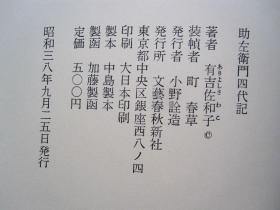 助左衛門四代記
著者 有吉佐和子 ©
ありよしさわこ
装幀者 町 春草
発行者 小野詮造
発行所 文藝春秋新社
東京都中央区銀座西八ノ四
印刷 大日本印刷
製本 中島製本
製函 加藤製函
定価 五〇〇円
昭和三八年九月二五日発行